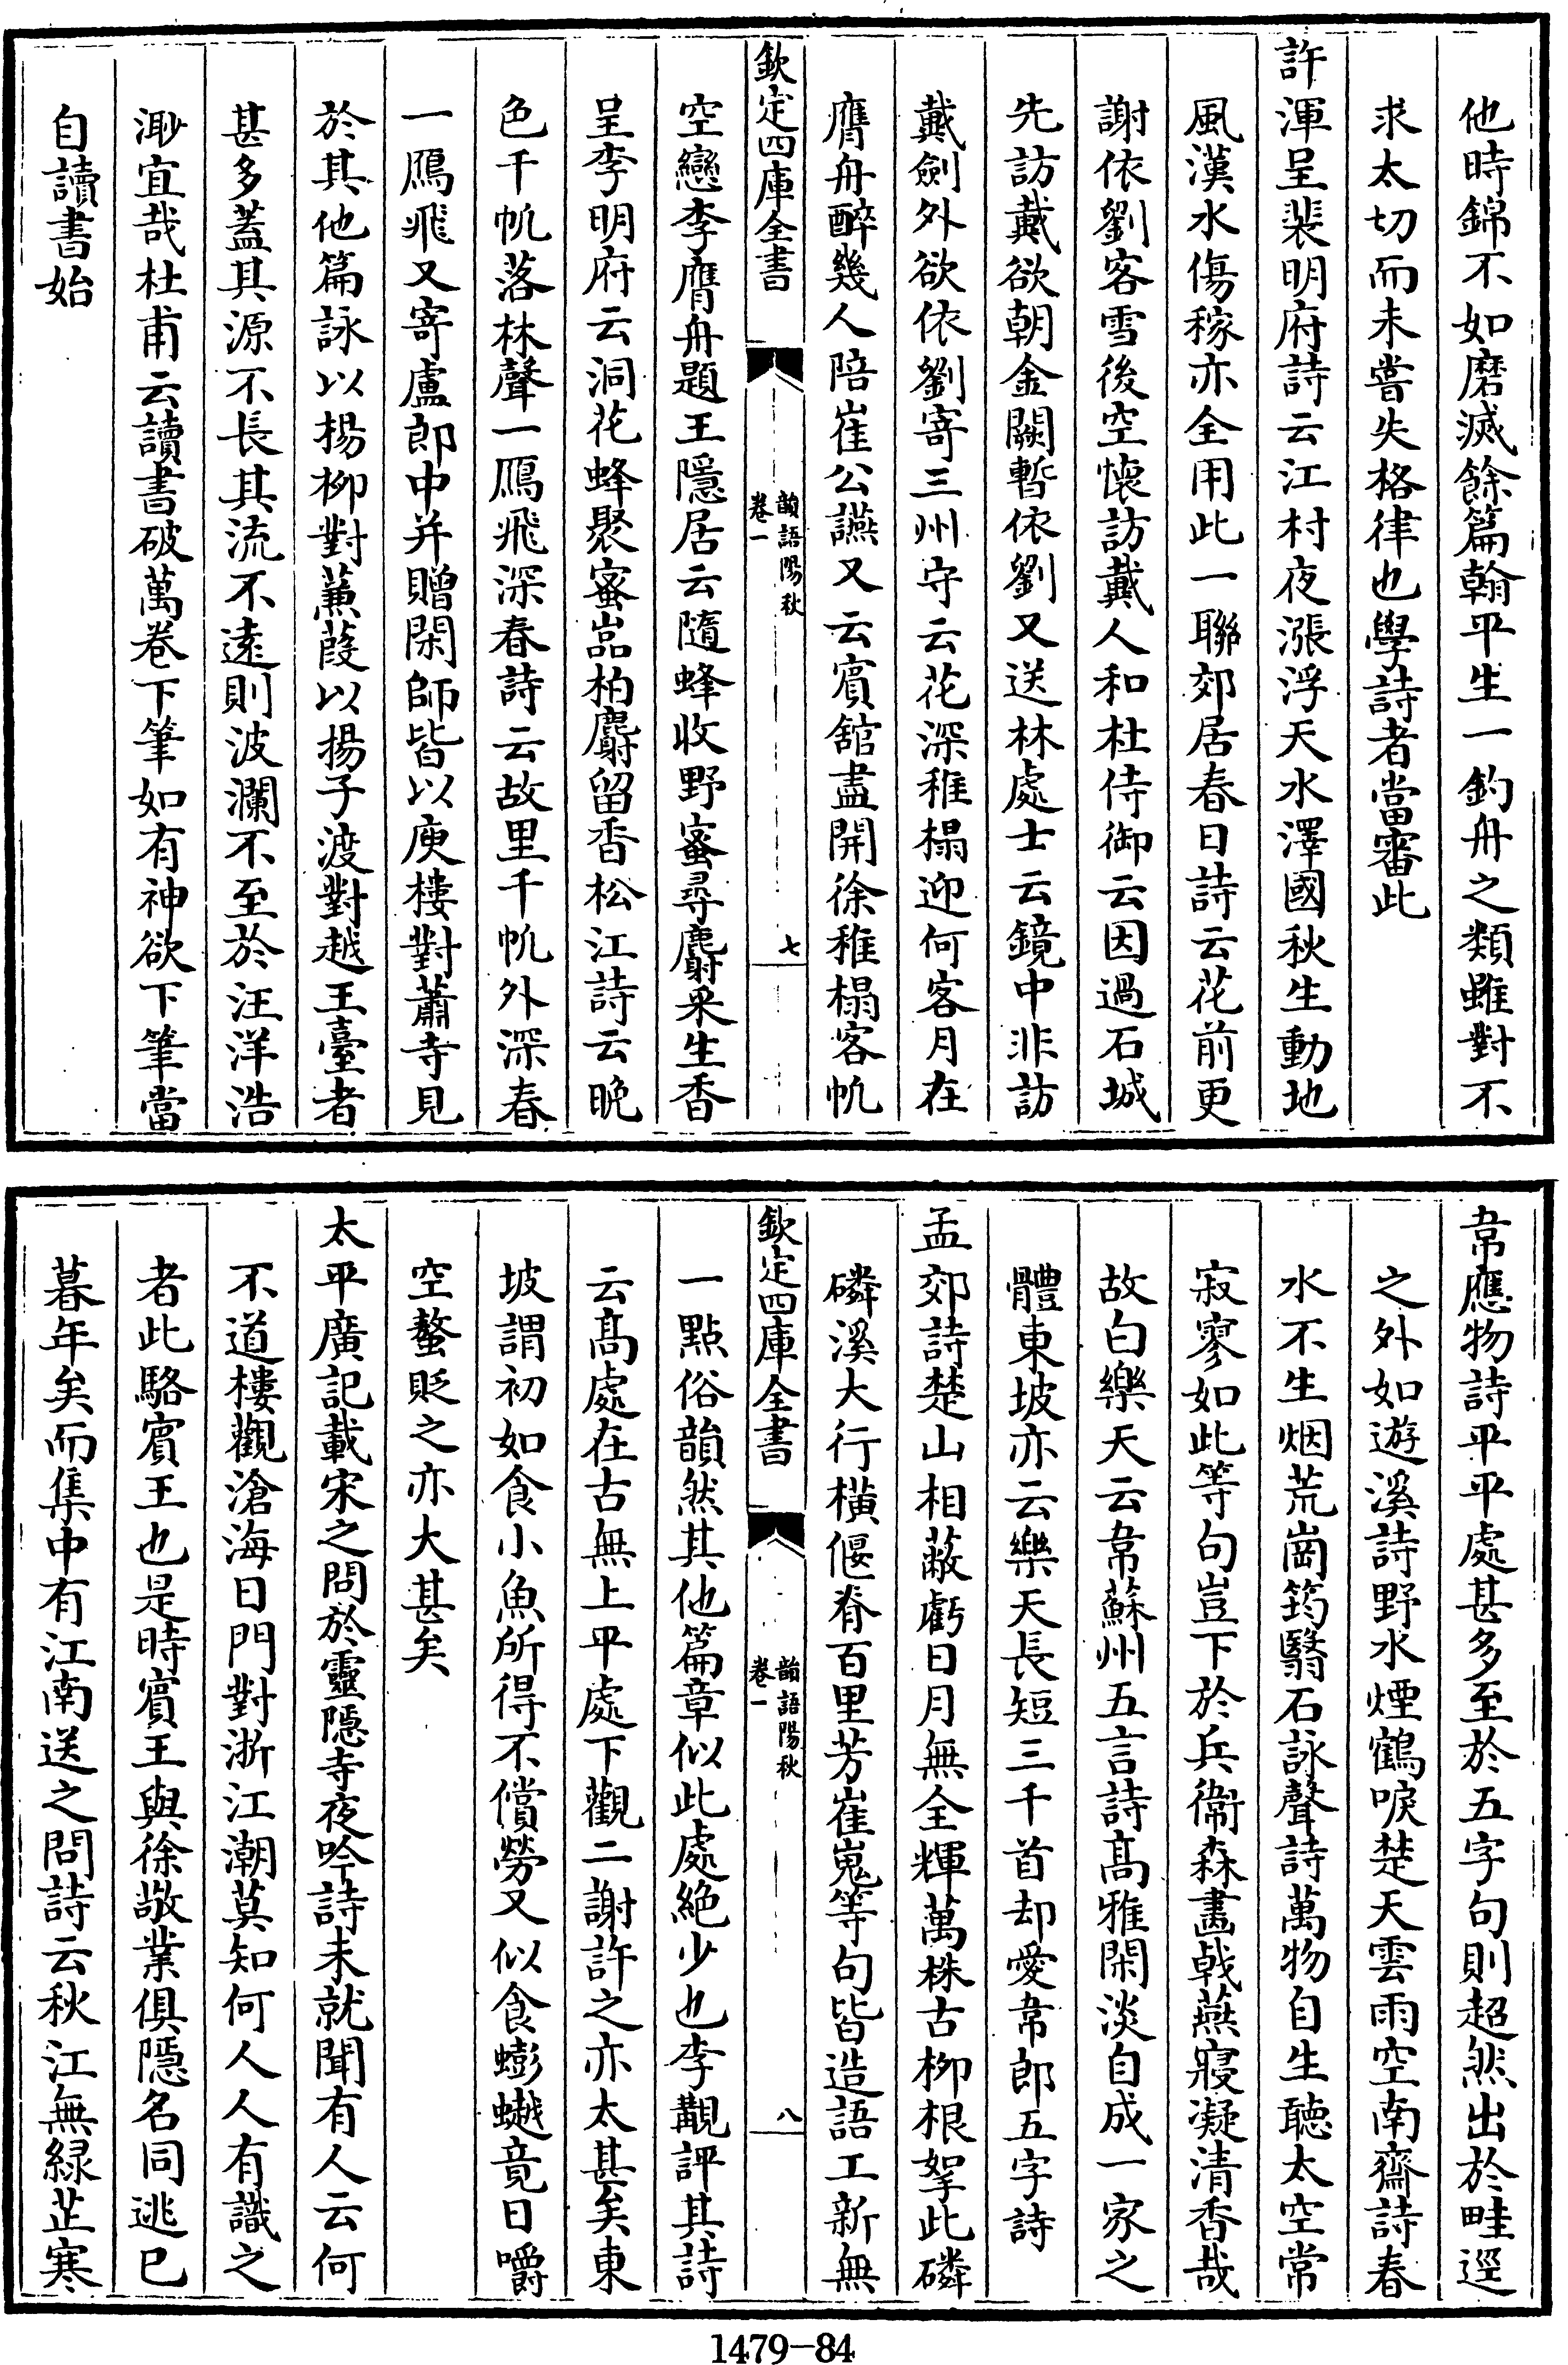 他時錦不如磨滅餘篇翰平生一釣舟之類雖對不
求太切而未嘗失格律也學詩者當審此
許渾呈裴明府詩云江村夜漲浮天水澤國秋生動地
風漢水傷稼亦全用此一聯郊居春日詩云花前更
謝依劉客雪後空懷訪戴人和杜侍御云因過石城
先訪戴欲朝金闕暫依劉又送林處士云鏡中非訪
戴劍外欲依劉寄三州守云花深稚榻迎何客月在
膺舟醉幾人陪崔公讌又云賓舘盡開徐稚榻客帆
欽定四庫全書
韻語陽秋
卷一
七
空戀李膺舟題王隱居云隨蜂收野蜜尋麝采生香
呈李明府云洞花蜂聚蜜嵓柏麝留香松江詩云晩
色千帆落林聲一鴈飛深春詩云故里千帆外深春
一鴈飛又寄盧郎中并贈閑師皆以庾樓對蕭寺見
於其他篇詠以楊柳對蒹葭以揚子渡對越王臺者
甚多蓋其源不長其流不遠則波瀾不至於汪洋浩
渺宜哉杜甫云讀書破萬卷下筆如有神欲下筆當
自讀書始
韋應物詩平平處甚多至於五字句則超然出於畦逕
之外如遊溪詩野水煙鶴唳楚天雲雨空南齋詩春
水不生烟荒崗筠翳石詠聲詩萬物自生聽太空常
寂寥如此等句豈下於兵衛森畫戟燕寢凝清香哉
故白樂天云韋蘇州五言詩髙雅閑淡自成一家之
體東坡亦云樂天長短三千首却愛韋郎五字詩
孟郊詩楚山相蔽虧日月無全輝萬株古柳根拏此磷
磷溪大行橫偃脊百里芳崔嵬等句皆造語工新無
欽定四庫全書
韻語陽秋
卷一
八
一點俗韻然其他篇章似此處絶少也李觀評其詩
云髙處在古無上平處下觀二謝許之亦太甚矣東
坡謂初如食小魚所得不償勞又似食蟛𧑅竟日嚼
空螯貶之亦大甚矣
太平廣記載宋之問於靈隱寺夜吟詩未就聞有人云何
不道樓觀滄海日門對浙江潮莫知何人人有識之
者此駱賓王也是時賓王與徐敬業俱隱名同逃已
暮年矣而集中有江南送之問詩云秋江無緑芷寒
1479-84